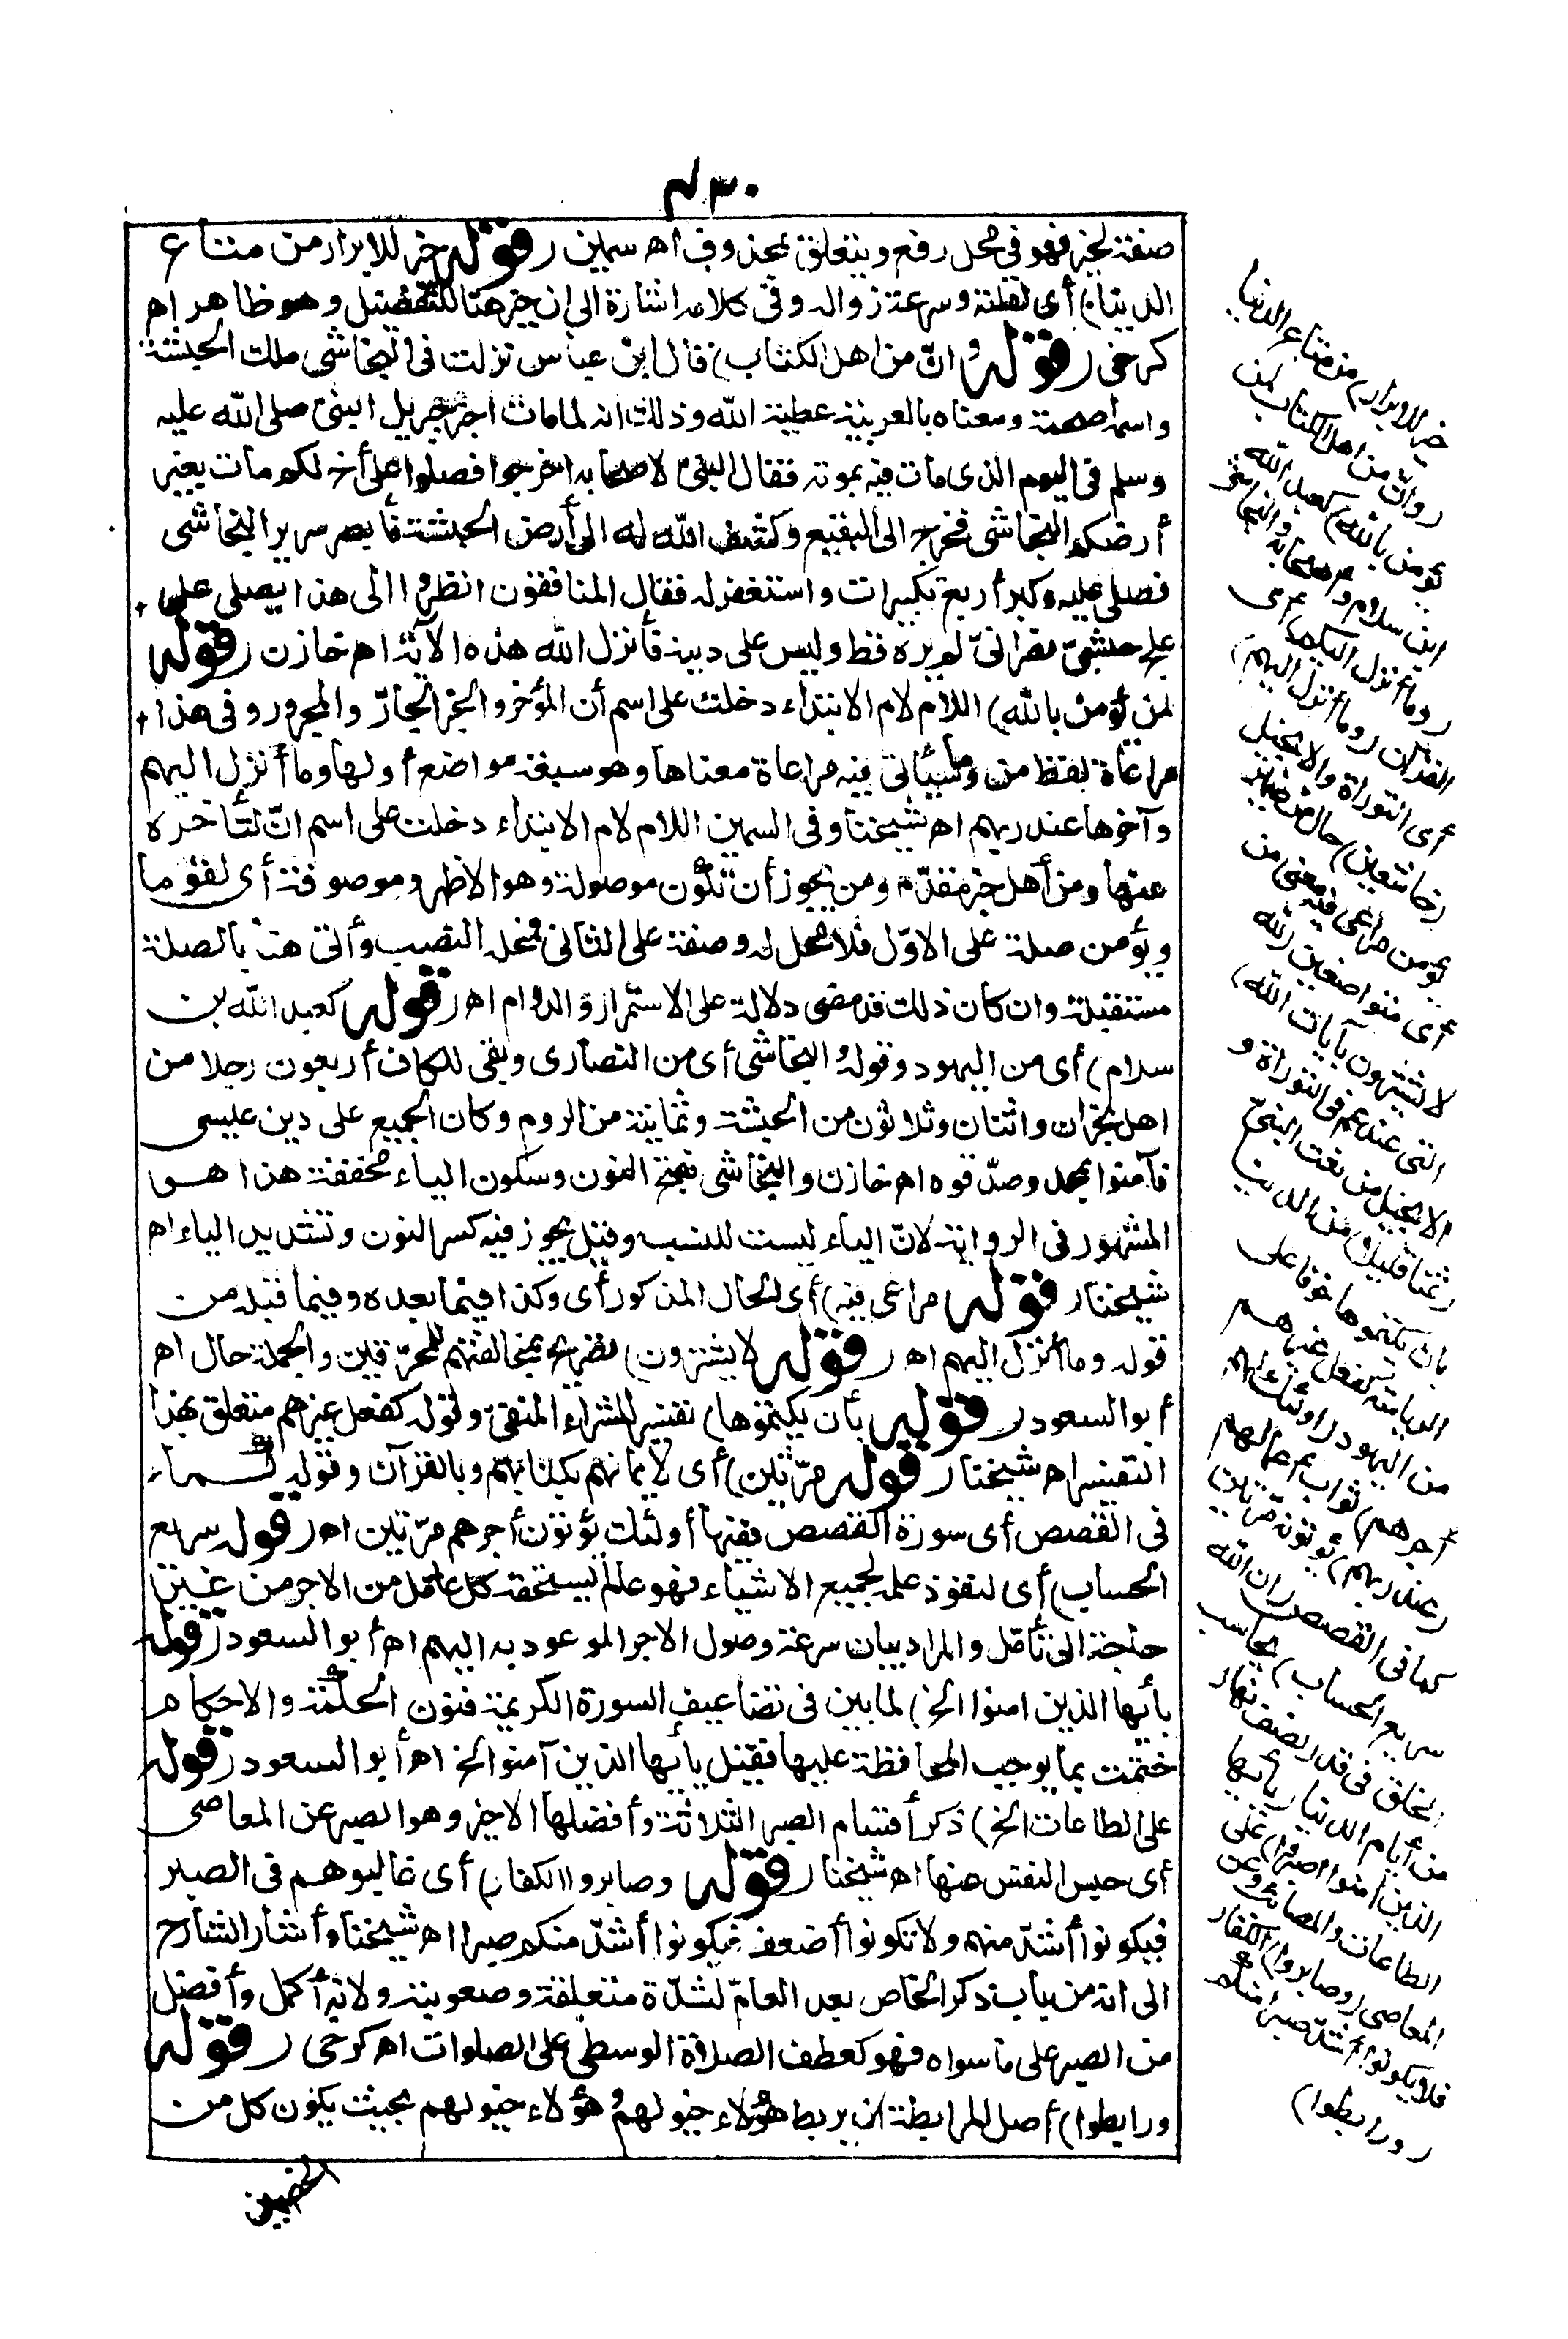 ٤٣٠
صفة لخير فهو في محل رفع ويتعلق بمحذوف اه سمين (قوله خير للابرار من متاع
الدنيا) أى لقلته وسرعة زواله وفى كلامه اشارة الى ان خير هنا للتفضيل وهو ظاهر اه
كرخى (قوله وانّ من اهل الكتاب) قال ابن عباس نزلت فى النجاشى ملك الحبشة
واسمه اصحمة ومعناه بالعربية عطية الله وذلك انه لما مات اخبر جبريل النبىّ صلى الله عليه
وسلم فى اليوم الذى مات فيه بموته فقال النبىّ لاصحابه اخرجوا فصلوا على أخ لكم مات بغير
أرضكم النجاشى فخرج الى البقيع وكشف الله له الى أرض الحبشة فأبصر سرير النجاشى
فصلى عليه وكبر أربع تكبيرات واستغفر له فقال المنافقون انظروا الى هذا يصلى على
علج حبشىّ نصرانىّ لم يره قط وليس على دينه فأنزل الله هذه الآية اه خازن (قوله
لمن يؤمن بالله) اللام لام الابتداء دخلت على اسم أن المؤخر والخبر الجارّ والمجرور وفى هذا
مراعاة لفظ من وسيأتى فيه مراعاة معناها وهو سبعة مواضع أولها وما أنزل اليهم
وآخرها عند ربهم اه شيخنا وفى السمين اللام لام الابتداء دخلت على اسم انّ لتأخره
عنها ومن أهل خبر مقدّم ومن يجوز أن تكون موصولة وهو الاظهر وموصوفة أى لقوما
ويؤمن صلة على الاوّل فلا محل له وصفة على الثانى فمحله النصب وأتى هنا بالصلة
مستقبلة وان كان ذلك قد مضى دلالة على الاستمرار والدوام اه (قوله كعبد الله بن
سلام) أى من اليهود وقوله والنجاشى أى من النصارى وبقى للكاف أربعون رجلا من
اهل نجران واثنان وثلاثون من الحبشة وثمانية من الروم وكان الجميع على دين عيسى
فآمنوا بمحمد وصدّقوه اه خازن والنجاشى بفتح النون وسكون الياء مخففة هذا هو
المشهور فى الرواية لانّ الياء ليست للنسب وقيل يجوز فيه كسر النون وتشديد الياء اه
شيخنا (قوله مراعى فيه) أى الحال المذكور أى وكذا فيما بعده وفيما قبله من
قوله وما أنزل اليهم اه (قوله لا يشترون) تصريح بمخالفتهم للمحرّفين والجملة حال اه
أبو السعود (قوله بأن يكتموها) تفسير للشراء المنفىّ وقوله كفعل غيرهم متعلق بهذا
التفسير اه شيخنا (قوله مرّتين) أى لايمانهم بكتابهم وبالقرآن وقوله كما
فى القصص أى سورة القصص بقوله أولئك يؤتون أجرهم مرّتين اه (قوله سريع
الحساب) أى لنفوذ علمه لجميع الاشياء فهو عالم بما يستحقه كل عامل من الاجر من غير
حاجة الى تأمّل والمراد بيان سرعة وصول الاجر الموعود به اليهم اه أبو السعود (قوله
يأيها الذين امنوا الخ) لما بين فى تضاعيف السورة الكريمة فنون الحكمة والاحكام
ختمت بما يوجب المحافظة عليها فقيل يأيها الذين آمنوا الخ اه أبو السعود (قوله
على الطاعات الخ) ذكر أقسام الصبر الثلاثة وأفضلها الاخير وهو الصبر عن المعاصى
أى حبس النفس عنها اه شيخنا (قوله وصابروا الكفار) أى غالبوهم فى الصبر
فيكونوا أشدّ منهم ولا تكونوا أضعف فيكونوا أشدّ منكم صبرا اه شيخنا وأشار الشارح
الى انه من باب ذكر الخاص بعد العامّ لشدّة متعلقة وصعوبته ولانه أكمل وأفضل
من الصبر على ما سواه فهو كعطف الصلاة الوسطى على الصلوات اه كرخى (قوله
ورابطوا) أصل المرابطة ان يربط هؤلاء خيولهم وهؤلاء خيولهم بحيث يكون كل من
الخصمين
خير للابرار) من متاع الدنيا
(وانّ من اهل الكتاب لمن
يؤمن بالله) كعبد الله
ابن سلام وأصحابه والنجاشى
(وما أنزل اليكم) أى
القرآن (وما أنزل اليهم)
أى التوراة والانجيل
(خاشعين) حال من ضمير
يؤمن مراعى فيه معنى من
أى متواضعين (لله
لا يشترون بآيات الله)
التى عندهم فى التوراة و
الانجيل من نعت النبىّ
(ثمنا قليلا) من الدنيا
بأن يكتموها خوفا على
الرياسة كفعل غيرهم
من اليهود (أولئك لهم
أجرهم) ثواب أعمالهم
(عند ربهم) يؤتونه مرّتين
كما فى القصص (ان الله
سريع الحساب) يحاسب
الخلق فى قدر نصف نهار
من أيام الدنيا (يأيها
الذين امنوا اصبروا) على
الطاعات والمصائب وعن
المعاصى (وصابروا) الكفار
فلا يكونوا أشدّ صبرا منكم
(ورابطوا)